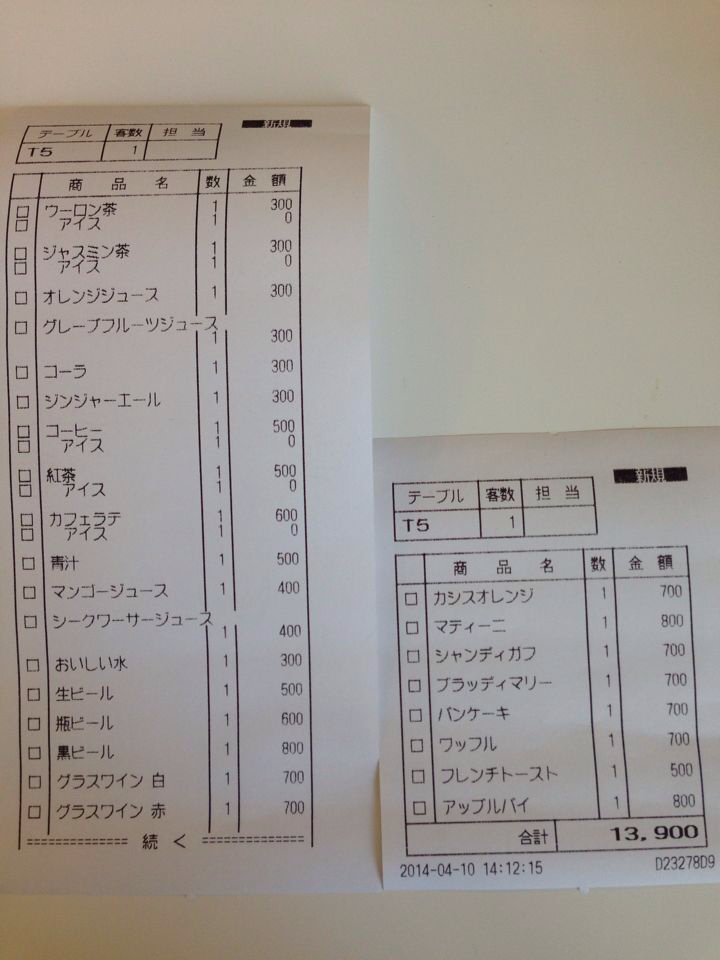 新規
テーブル 客数 担当
T5 1
商品名 数 金額
□ ウーロン茶 1 300
□ アイス 1 0
□ ジャスミン茶 1 300
□ アイス 1 0
□ オレンジジュース 1 300
□ グレープフルーツジュース
1 300
□ コーラ 1 300
□ ジンジャーエール 1 300
□ コーヒー 1 500
□ アイス 1 0
□ 紅茶 1 500
□ アイス 1 0
□ カフェラテ 1 600
□ アイス 1 0
□ 青汁 1 500
□ マンゴージュース 1 400
□ シークワーサージュース
1 400
□ おいしい水 1 300
□ 生ビール 1 500
□ 瓶ビール 1 600
□ 黒ビール 1 800
□ グラスワイン 白 1 700
□ グラスワイン 赤 1 700
============= 続 く =============
新規
テーブル 客数 担当
T5 1
商品名 数 金額
□ カシスオレンジ 1 700
□ マティーニ 1 800
□ シャンディガフ 1 700
□ ブラッディマリー 1 700
□ パンケーキ 1 700
□ ワッフル 1 700
□ フレンチトースト 1 500
□ アップルパイ 1 800
合計 13,900
2014-04-10 14:12:15 D23278D9